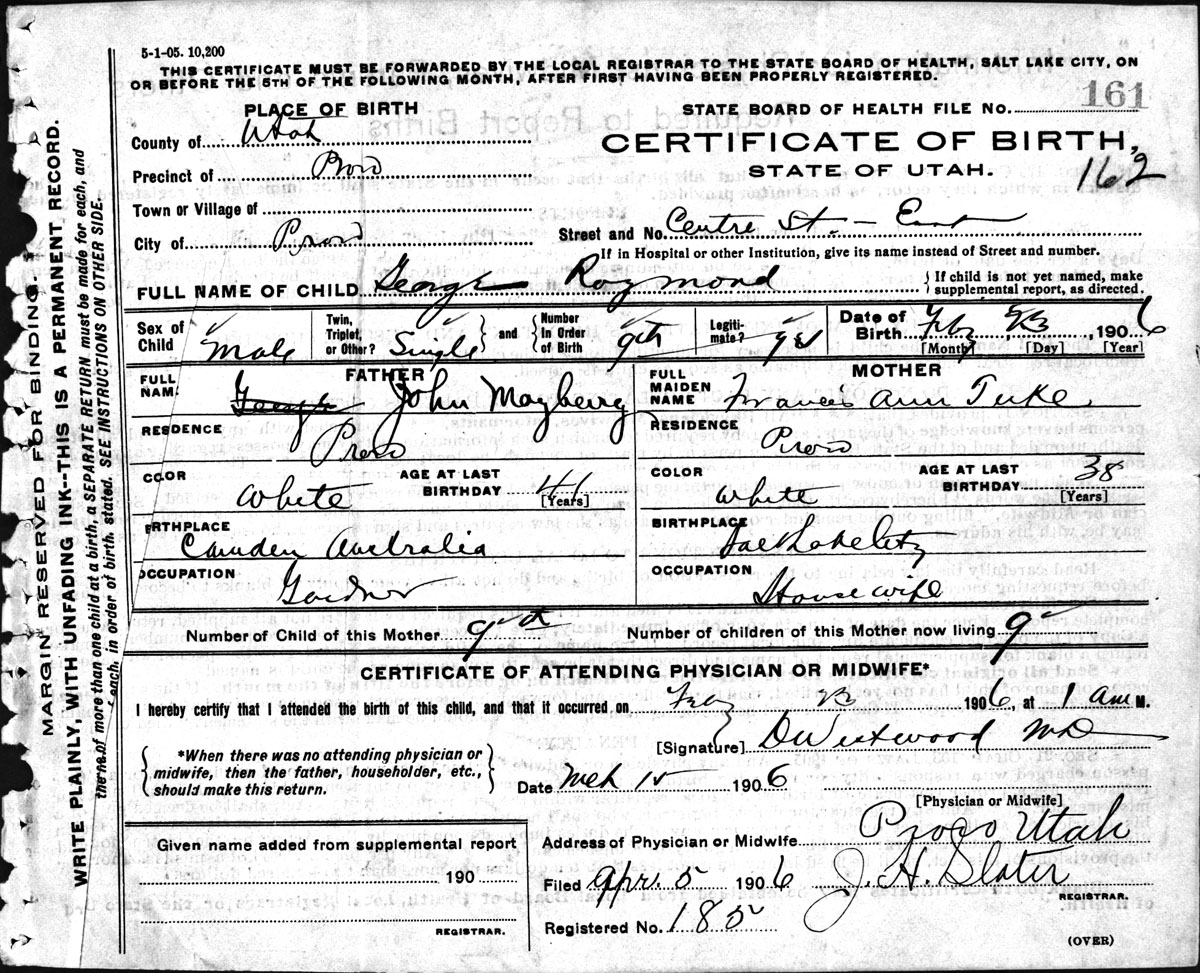 5-1-05. 10,200
THIS CERTIFICATE MUST BE FORWARDED BY THE LOCAL REGISTRAR TO THE STATE BOARD OF HEALTH, SALT LAKE CITY, ON
OR BEFORE THE 5TH OF THE FOLLOWING MONTH, AFTER FIRST HAVING BEEN PROPERLY REGISTERED.
PLACE OF BIRTH
County of Utah
Precinct of Provo
Town or Village of
City of Provo
STATE BOARD OF HEALTH FILE NO. 161
CERTIFICATE OF BIRTH,
STATE OF UTAH.
162
Street and No. Centre St. - East
If in Hospital or other Institution, give its name instead of Street and number.
FULL NAME OF CHILD George Raymond
If child is not yet named, make
supplemental report, as directed.
Sex of Child Male
Twin, Triplet, or Other? Single and Number in Order of Birth 9th
Legitimate? yes
Date of Birth Feby 1906
[Month] [Day] [Year]
FATHER
FULL NAM: George John Mayberry
RESIDENCE
Provo
COLOR White
AGE AT LAST BIRTHDAY 41
[Years]
BIRTHPLACE
Camden Australia
OCCUPATION
Gardner
MOTHER
FULL MAIDEN NAME Frances Ann Tuke
RESIDENCE
Provo
COLOR White
AGE AT LAST BIRTHDAY 38
[Years]
BIRTHPLACE
Salt Lake City
OCCUPATION
Housewife
Number of Child of this Mother 9th
Number of children of this Mother now living 9
CERTIFICATE OF ATTENDING PHYSICIAN OR MIDWIFE*
I hereby certify that I attended the birth of this child, and that it occurred on Feby 1906, at 1 am M.
[Signature] D Westwood MD
*When there was no attending physician or
midwife, then the father, householder, etc.,
should make this return.
Date Mch 15 1906
[Physician or Midwife]
Given name added from supplemental report
190
REGISTRAR.
Address of Physician or Midwife Provo Utah
Filed Apr. 5 1906 J. H. Slater
REGISTRAR.
Registered No. 185
(OVER)
MARGIN RESERVED FOR BINDING.
WRITE PLAINLY, WITH UNFADING INK--THIS IS A PERMANENT RECORD.
of more than one child at a birth, a SEPARATE RETURN must be made for each, and
each, in order of birth, stated. SEE INSTRUCTIONS ON OTHER SIDE.